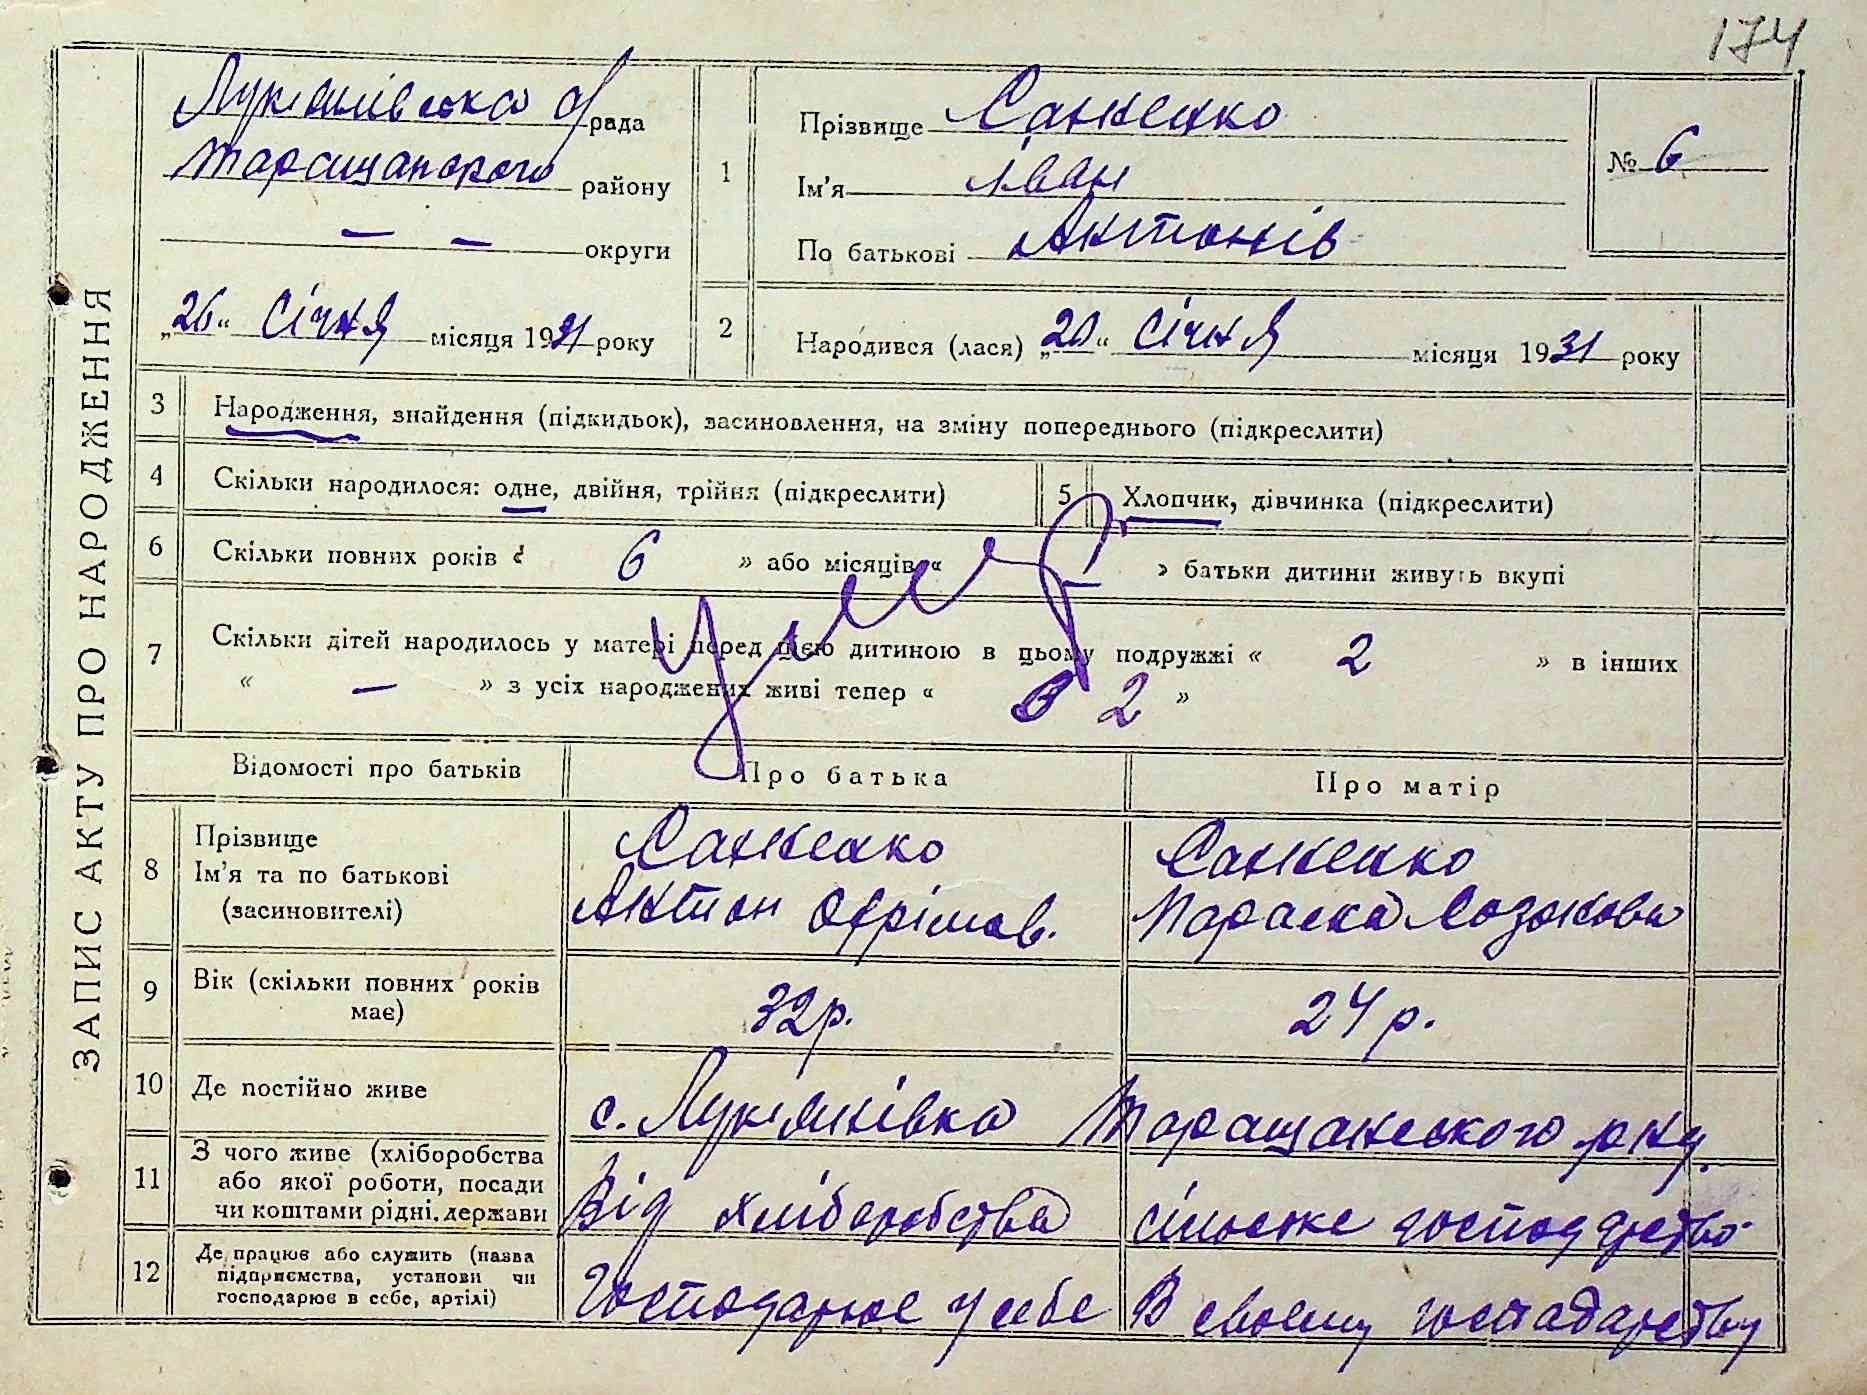 174
ЗАПИС АКТУ ПРО НАРОДЖЕННЯ
Лукянівська с/рада
Таращанского району
— — округи
„26“ Січня місяця 1931 року
1
Прізвище Саненко
Ім'я Іван
По батькові Антонів
№ 6
2
Народився (лася) „20“ Січня місяця 1931 року
3 Народження, знайдення (підкидьок), засиновлення, на зміну попереднього (підкреслити)
4 Скільки народилося: одне, двійня, трійня (підкреслити)
5 Хлопчик, дівчинка (підкреслити)
6 Скільки повних років « 6 » або місяців « » батьки дитини живуть вкупі
7 Скільки дітей народилось у матері перед цією дитиною в цьому подружжі « 2 » в інших
« — » з усіх народжених живі тепер « 2 »
умер
Відомості про батьків Про батька Про матір
8 Прізвище
Ім'я та по батькові
(засиновителі)
Саненко
Антон Охрімов.
Саненко
Параска Созонова
9 Вік (скільки повних років
має)
32р.
24 р.
10 Де постійно живе
с. Лукянівка Таращанського р-ну.
11 З чого живе (хліборобства
або якої роботи, посади
чи коштами рідні, держави
Від хліборобства
сільське господарство
12 Де працює або служить (назва
підприємства, установи чи
господарює в себе, артілі)
Господарює у себе
В своєму господарству